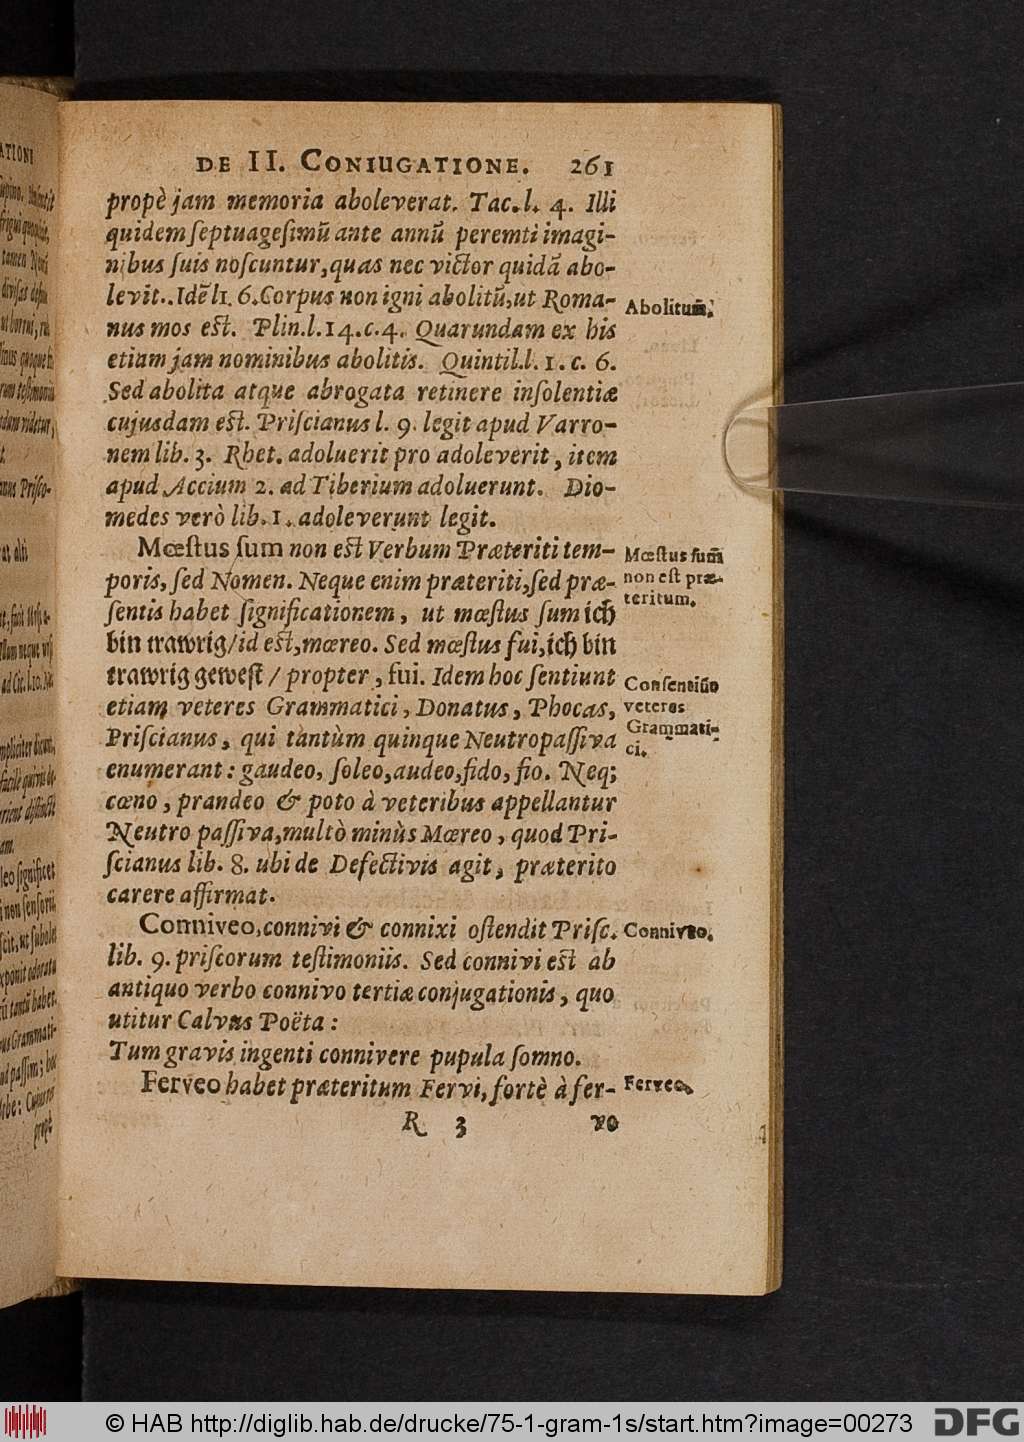 DE II. CONIUGATIONE. 261
propè jam memoria aboleverat. Tac. l. 4. Illi
quidem ſeptuageſimū ante annū peremti imagi-
nibus ſuis noſcuntur, quas nec victor quidā abo-
levit. Idē l1. 6. Corpus non igni abolitū, ut Roma-
nus mos eſt. Plin. l. 14. c. 4. Quarundam ex his
etiam jam nominibus abolitis. Quintil. l. 1. c. 6.
Sed abolita atque abrogata retinere inſolentiæ
cujusdam eſt. Priſcianus l. 9. legit apud Varro-
nem lib. 3. Rhet. adoluerit pro adoleverit, item
apud Accium 2. ad Tiberium adoluerunt. Dio-
medes verò lib. 1. adoleverunt legit.
Abolitum.
Mœſtus ſum non eſt Verbum Præteriti tem-
poris, ſed Nomen. Neque enim præteriti, ſed præ-
ſentis habet ſignificationem, ut mœſtus ſum ich
bin trawrig/ id eſt, mœreo. Sed mœſtus fui, ich bin
trawrig geweſt / propter, fui. Idem hoc ſentiunt
etiam veteres Grammatici, Donatus, Phocas,
Priſcianus, qui tantùm quinque Neutropaſſiva
enumerant: gaudeo, ſoleo, audeo, fido, fio. Neq;
cœno, prandeo & poto à veteribus appellantur
Neutro paſſiva, multò minùs Mœreo, quod Pri-
ſcianus lib. 8. ubi de Defectivis agit, præterito
carere affirmat.
Mœſtus ſum̄
non eſt præ-
teritum.
Conſentiūo
veteres
Grammati-
ci.
Conniveo, connivi & connixi oſtendit Priſc.
lib. 9. priſcorum teſtimoniis. Sed connivi eſt ab
antiquo verbo connivo tertiæ conjugationis, quo
utitur Calvus Poëta:
Tum gravis ingenti connivere pupula ſomno.
Conniveo.
Ferveo habet præteritum Fervi, fortè à fer-
Ferveo.
R 3 vo
© HAB http://diglib.hab.de/drucke/75-1-gram-1s/start.htm?image=00273
DFG